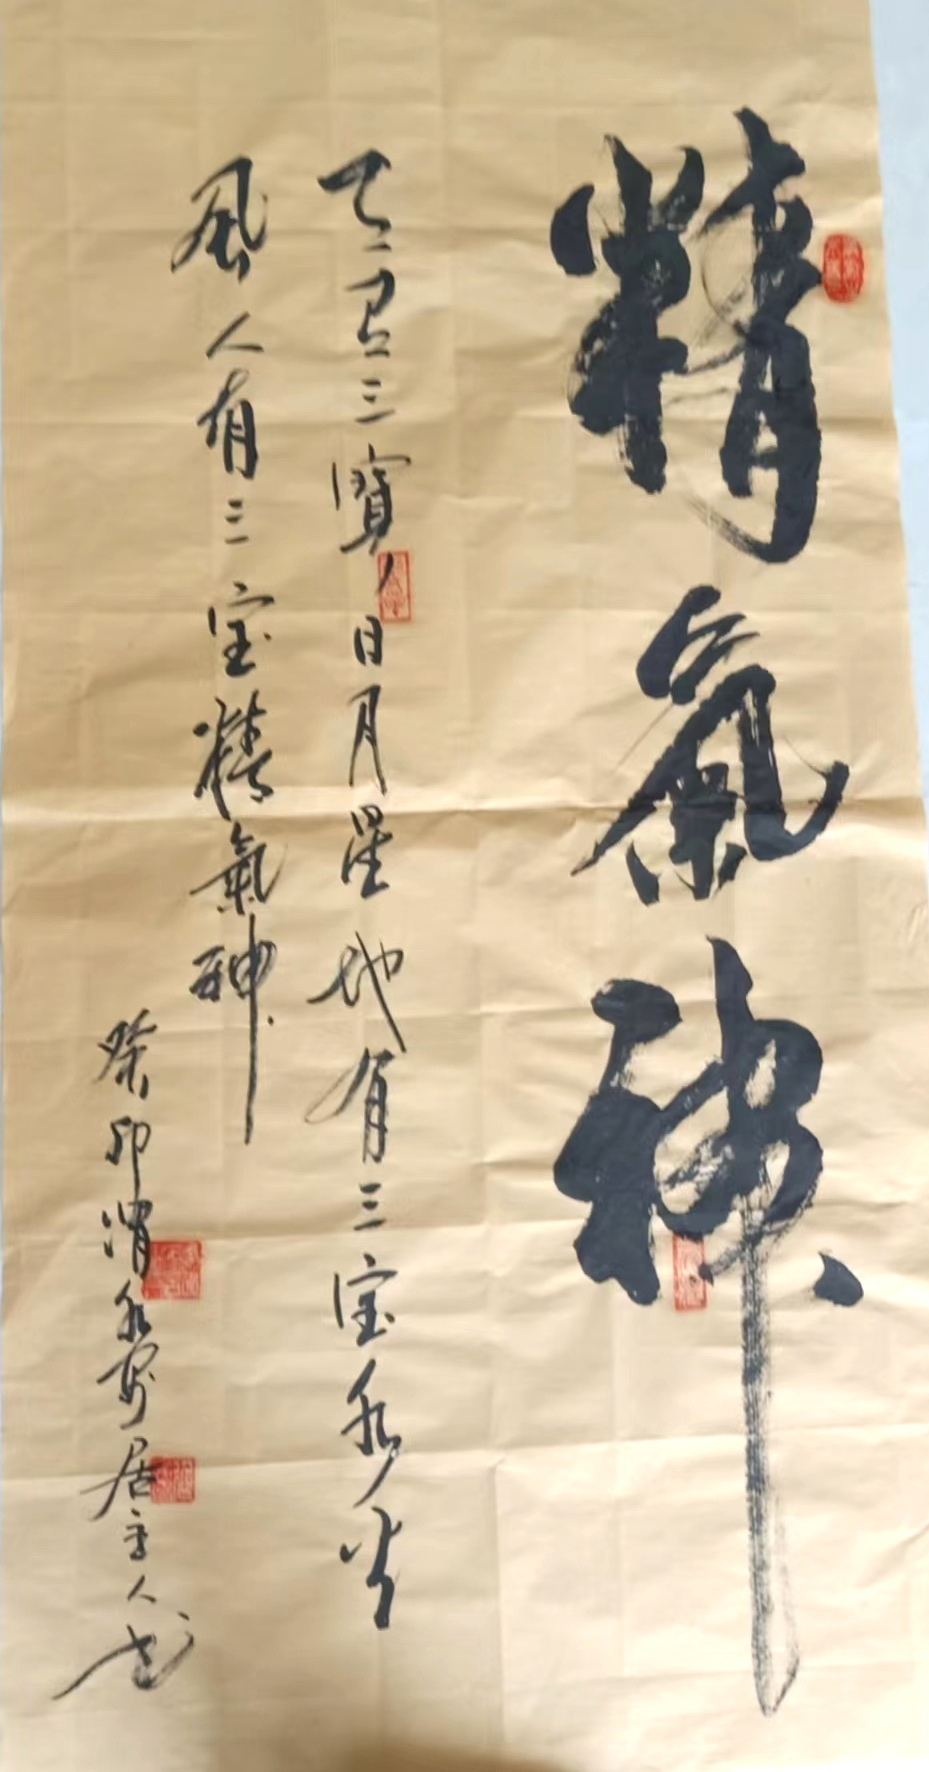 精氣神
天有三寶日月星地有三宝水火
風人有三宝精氣神
癸卯渭水
居主人书